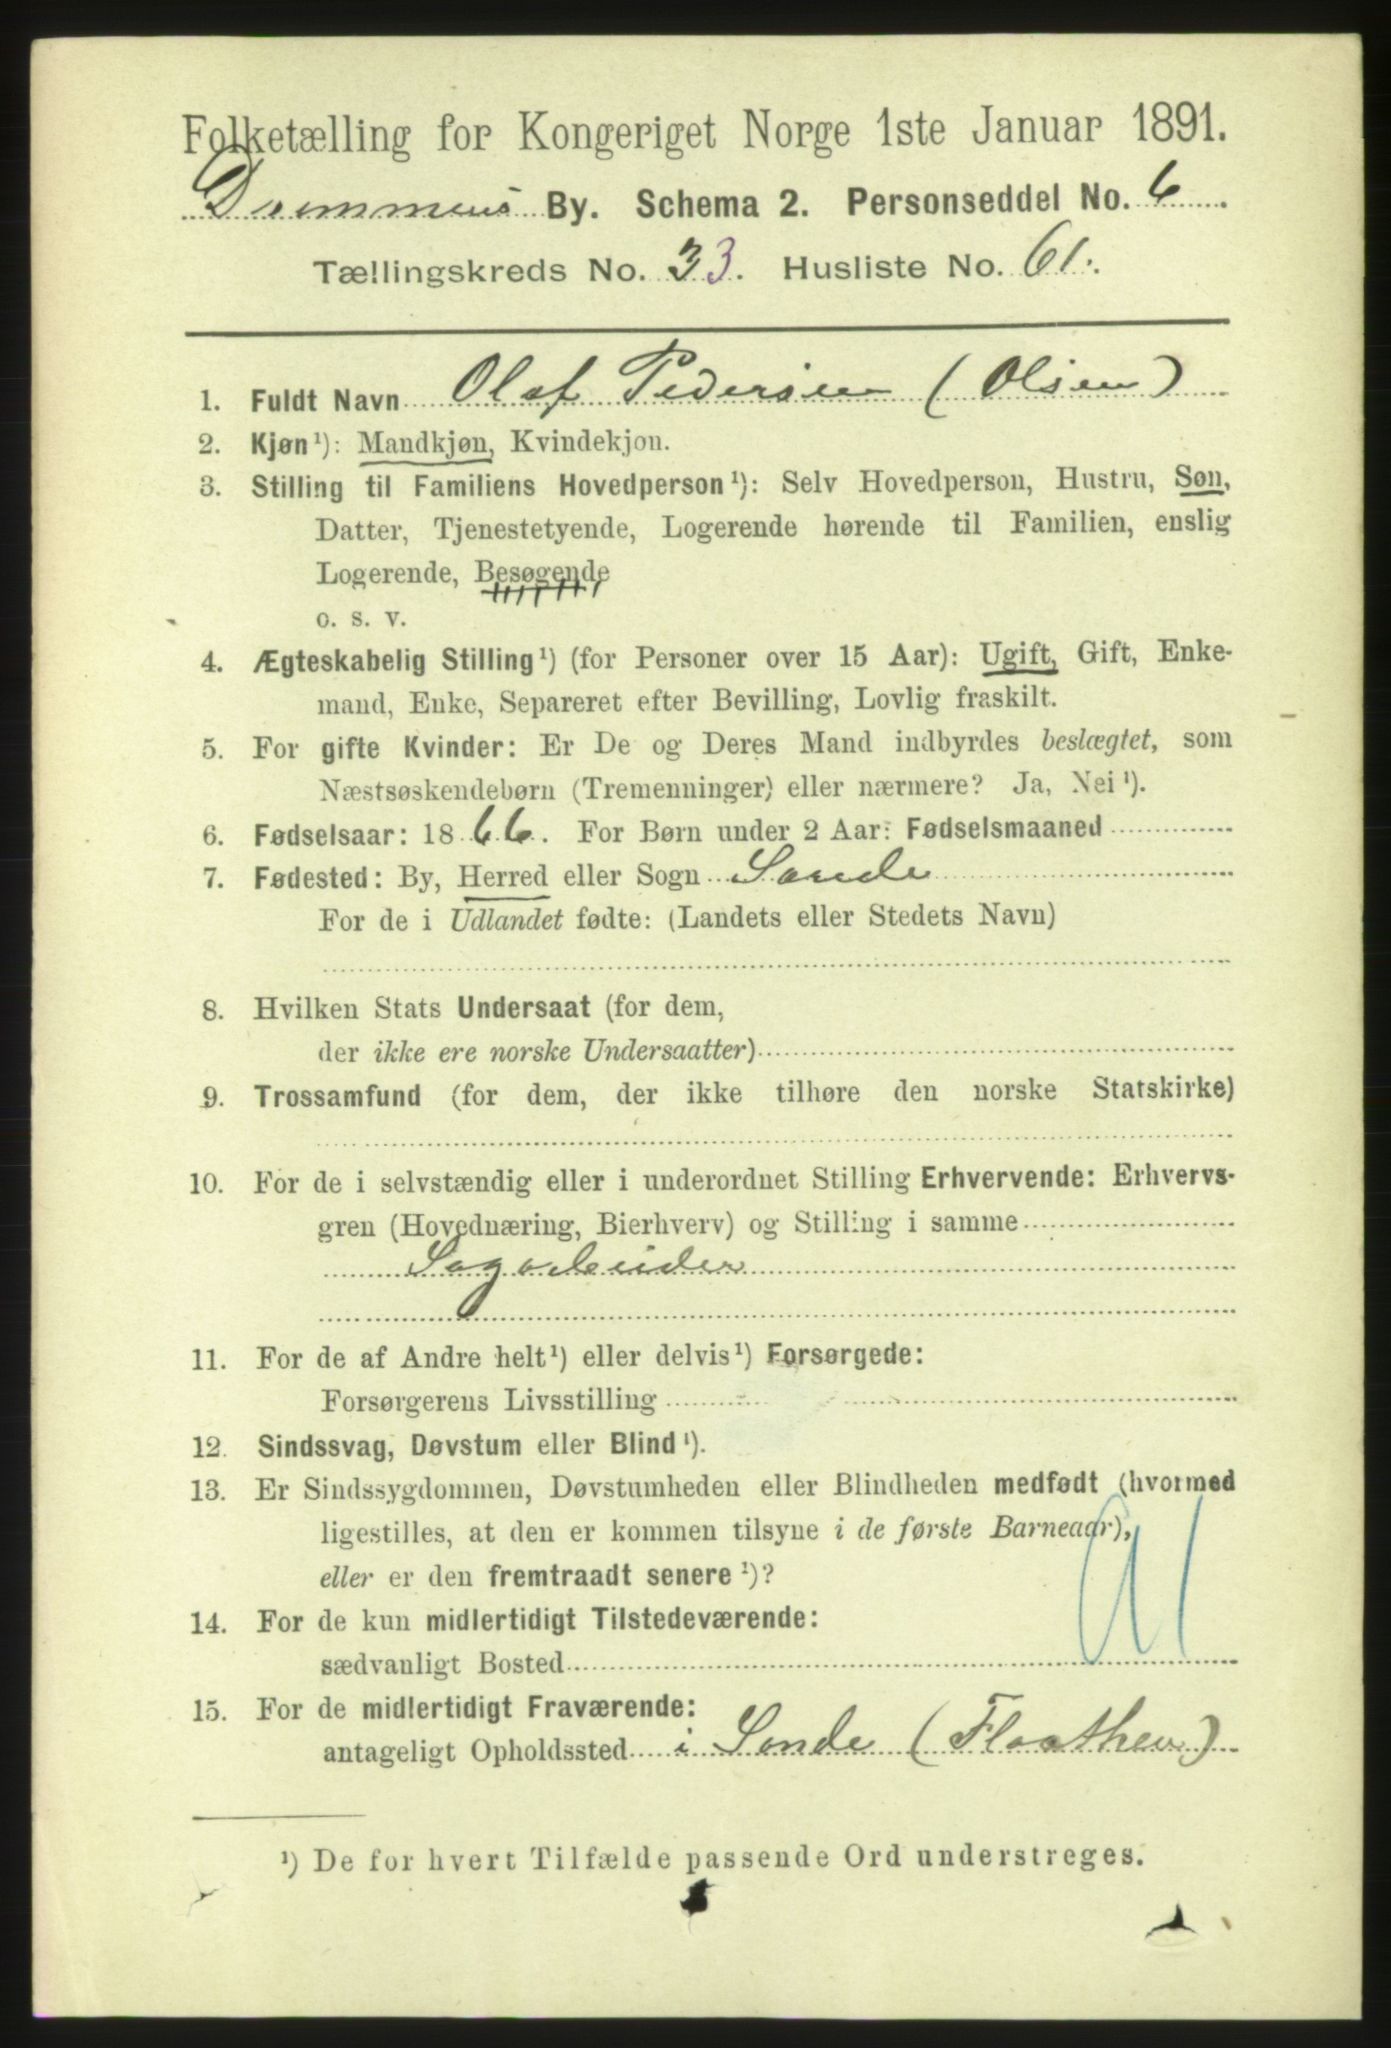 Folketælling for Kongeriget Norge 1ste Januar 1891.
Drammens By. Schema 2. Personseddel No. 6
Tællingskreds No. 33. Husliste No. 61.
1. Fuldt Navn Olaf Pedersen (Olsen)
2. Kjøn¹): Mandkjøn, Kvindekjøn.
3. Stilling til Familiens Hovedperson¹): Selv Hovedperson, Hustru, Søn,
Datter, Tjenestetyende, Logerende hørende til Familien, enslig
Logerende, Besøgende
o. s. v.
4. Ægteskabelig Stilling¹) (for Personer over 15 Aar): Ugift, Gift, Enke-
mand, Enke, Separeret efter Bevilling, Lovlig fraskilt.
5. For gifte Kvinder: Er De og Deres Mand indbyrdes beslægtet, som
Næstsøskendebørn (Tremenninger) eller nærmere? Ja, Nei¹).
6. Fødselsaar: 1866. For Børn under 2 Aar: Fødselsmaaned
7. Fødested: By, Herred eller Sogn Sande
For de i Udlandet fødte: (Landets eller Stedets Navn)
8. Hvilken Stats Undersaat (for dem,
der ikke ere norske Undersaatter)
9. Trossamfund (for dem, der ikke tilhøre den norske Statskirke)
10. For de i selvstændig eller i underordnet Stilling Erhvervende: Erhvervs-
gren (Hovednæring, Bierhverv) og Stilling i samme
Sagarbeider
11. For de af Andre helt¹) eller delvis¹) Forsørgede:
Forsørgerens Livsstilling
12. Sindssvag, Døvstum eller Blind¹).
13. Er Sindssygdommen, Døvstumheden eller Blindheden medfødt (hvormed
ligestilles, at den er kommen tilsyne i de første Barneaar),
eller er den fremtraadt senere¹)?
14. For de kun midlertidigt Tilstedeværende:
sædvanligt Bosted
15. For de midlertidigt Fraværende:
antageligt Opholdssted i Sande (Flaathen)
¹) De for hvert Tilfælde passende Ord understreges.